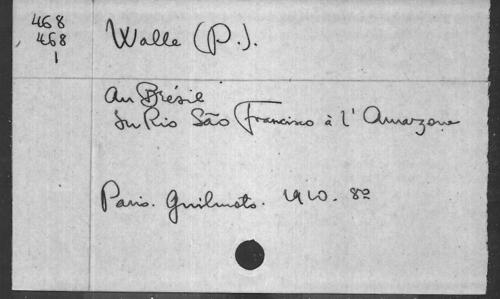 468
468
1
Walle (P.).
Au Brésil
Du Rio São Francisco à l'Amazone
Paris. Guilmoto. 1910. 8º